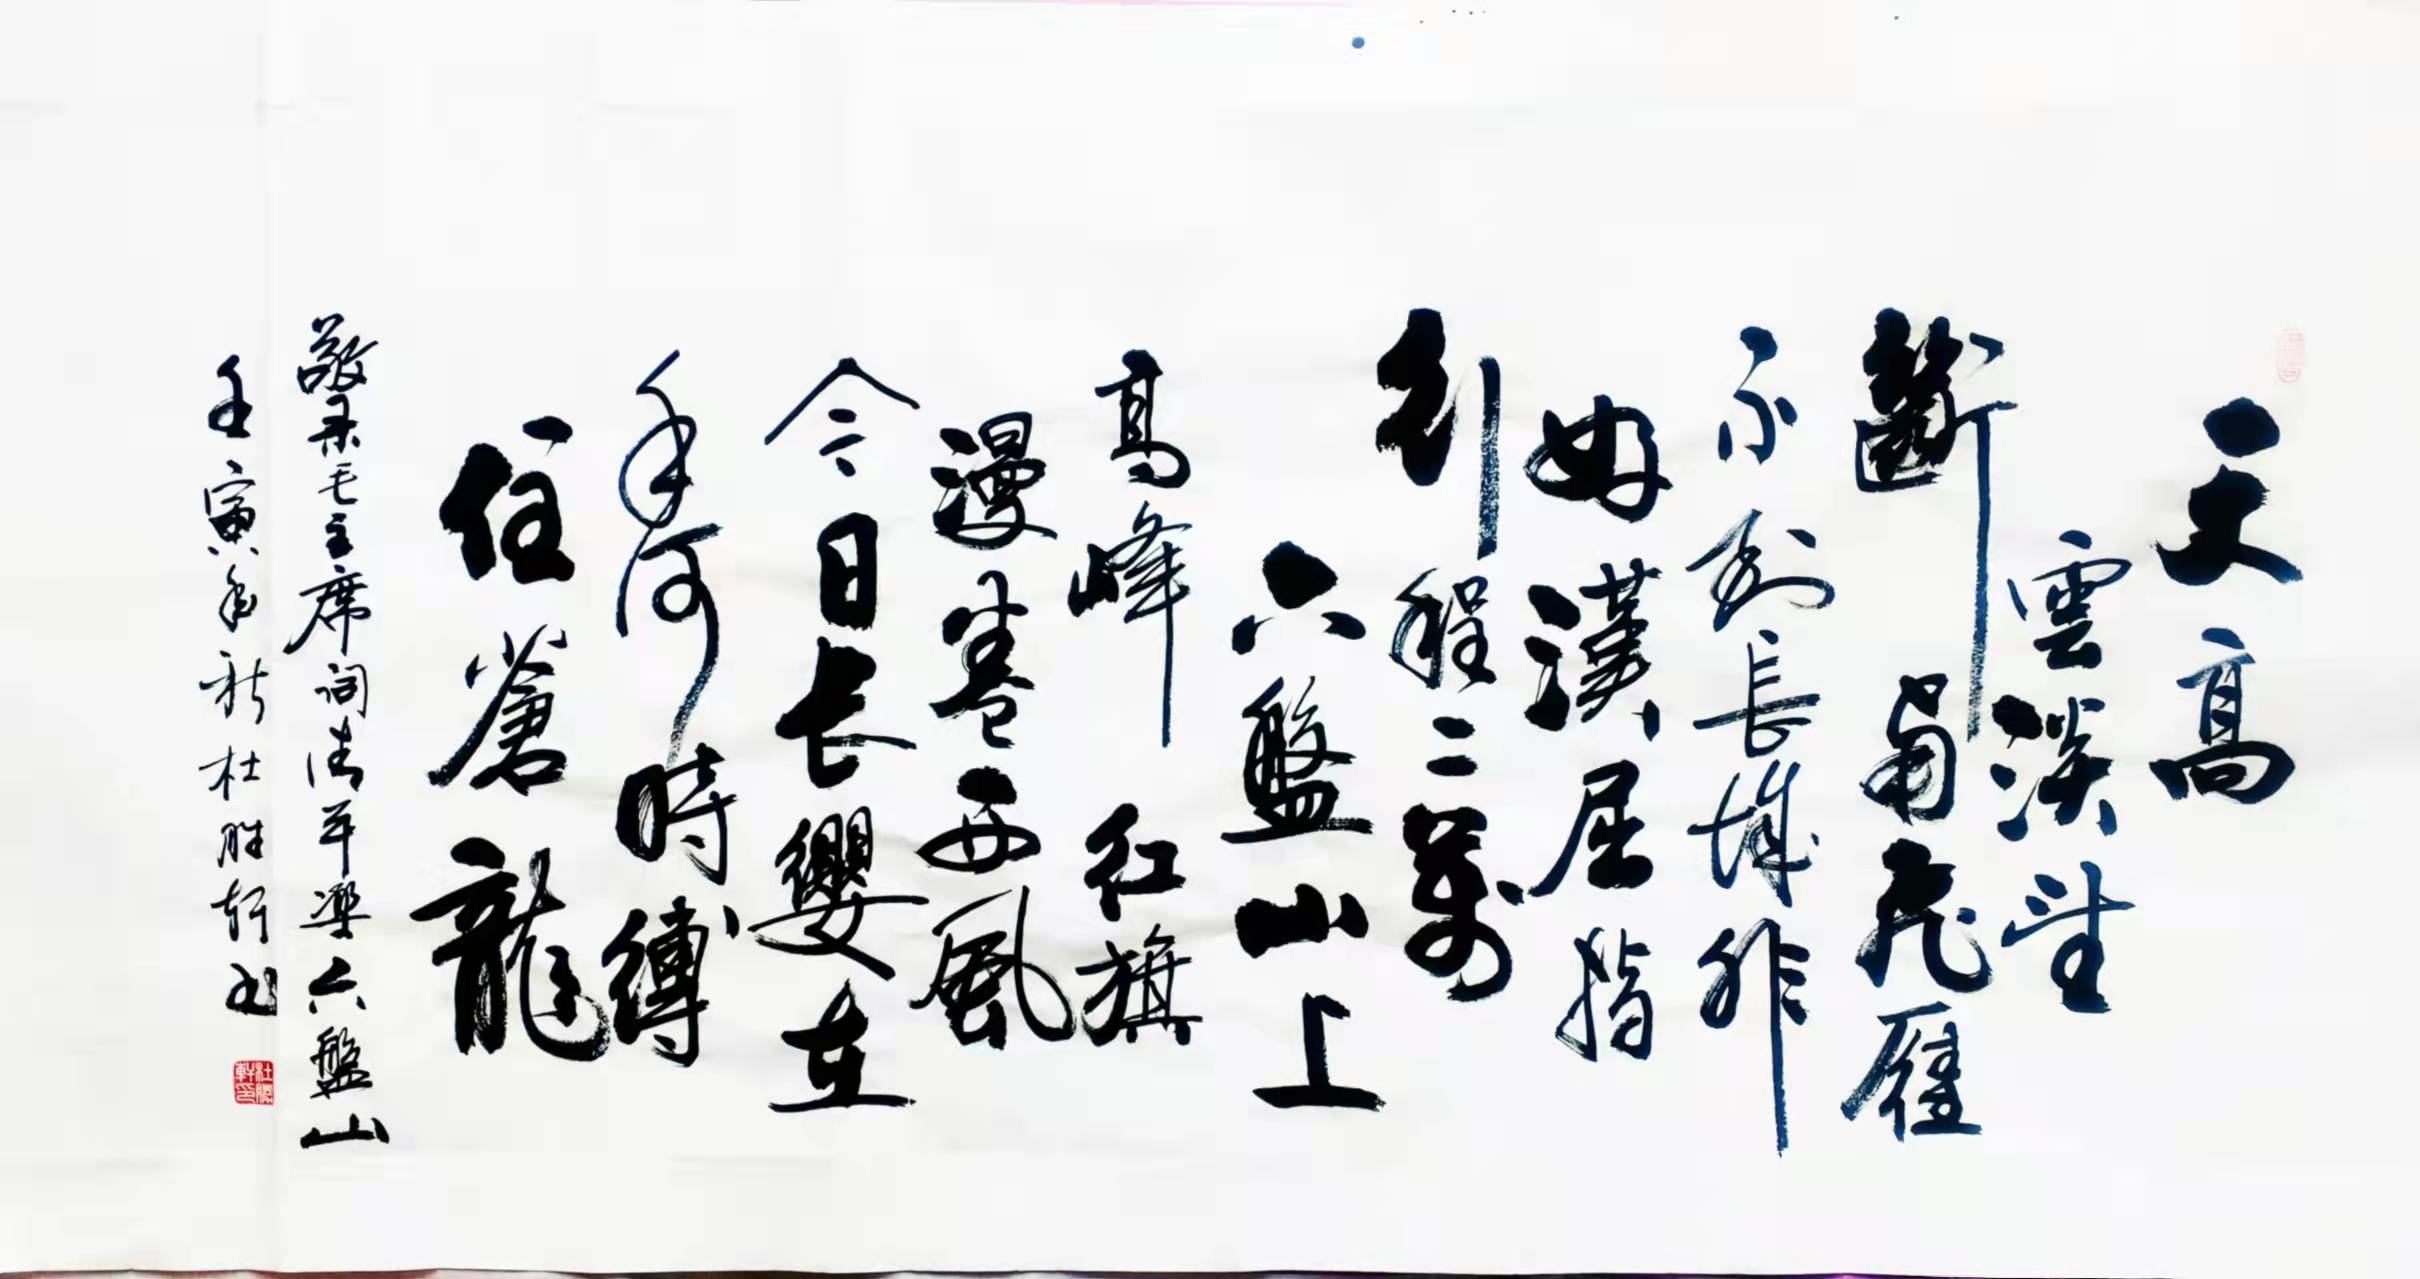 天高
雲淡望
斷南飛雁
不到長城非
好漢屈指
行程二萬
六盤山上
高峰紅旗
漫卷西風
今日长纓在
手何時縛
住蒼龍
敬录毛主席词清平樂六盤山
壬寅年杜胜轩书
杜勝軒印